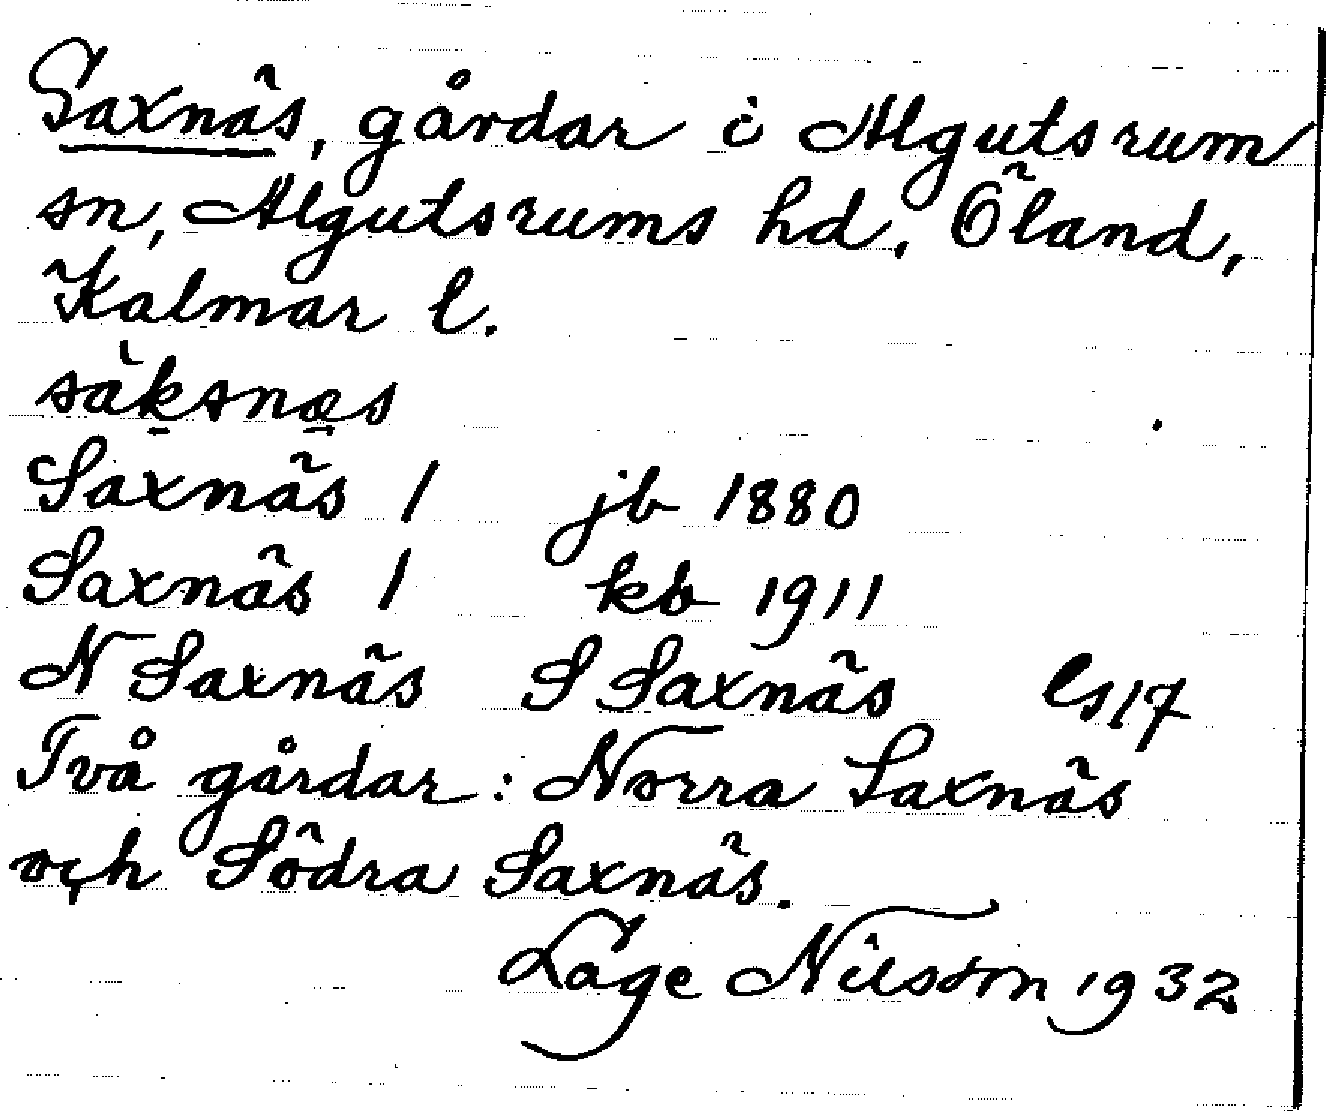 Saxnäs, gårdar i Algutsrum
sn, Algutsrums hd, Öland,
Kalmar l.
säksnæs
Saxnäs 1 jb 1880
Saxnäs 1 kb 1911
N Saxnäs S Saxnäs es 17
Två gårdar: Norra Saxnäs
och Södra Saxnäs.
Lage Nilsson 1932